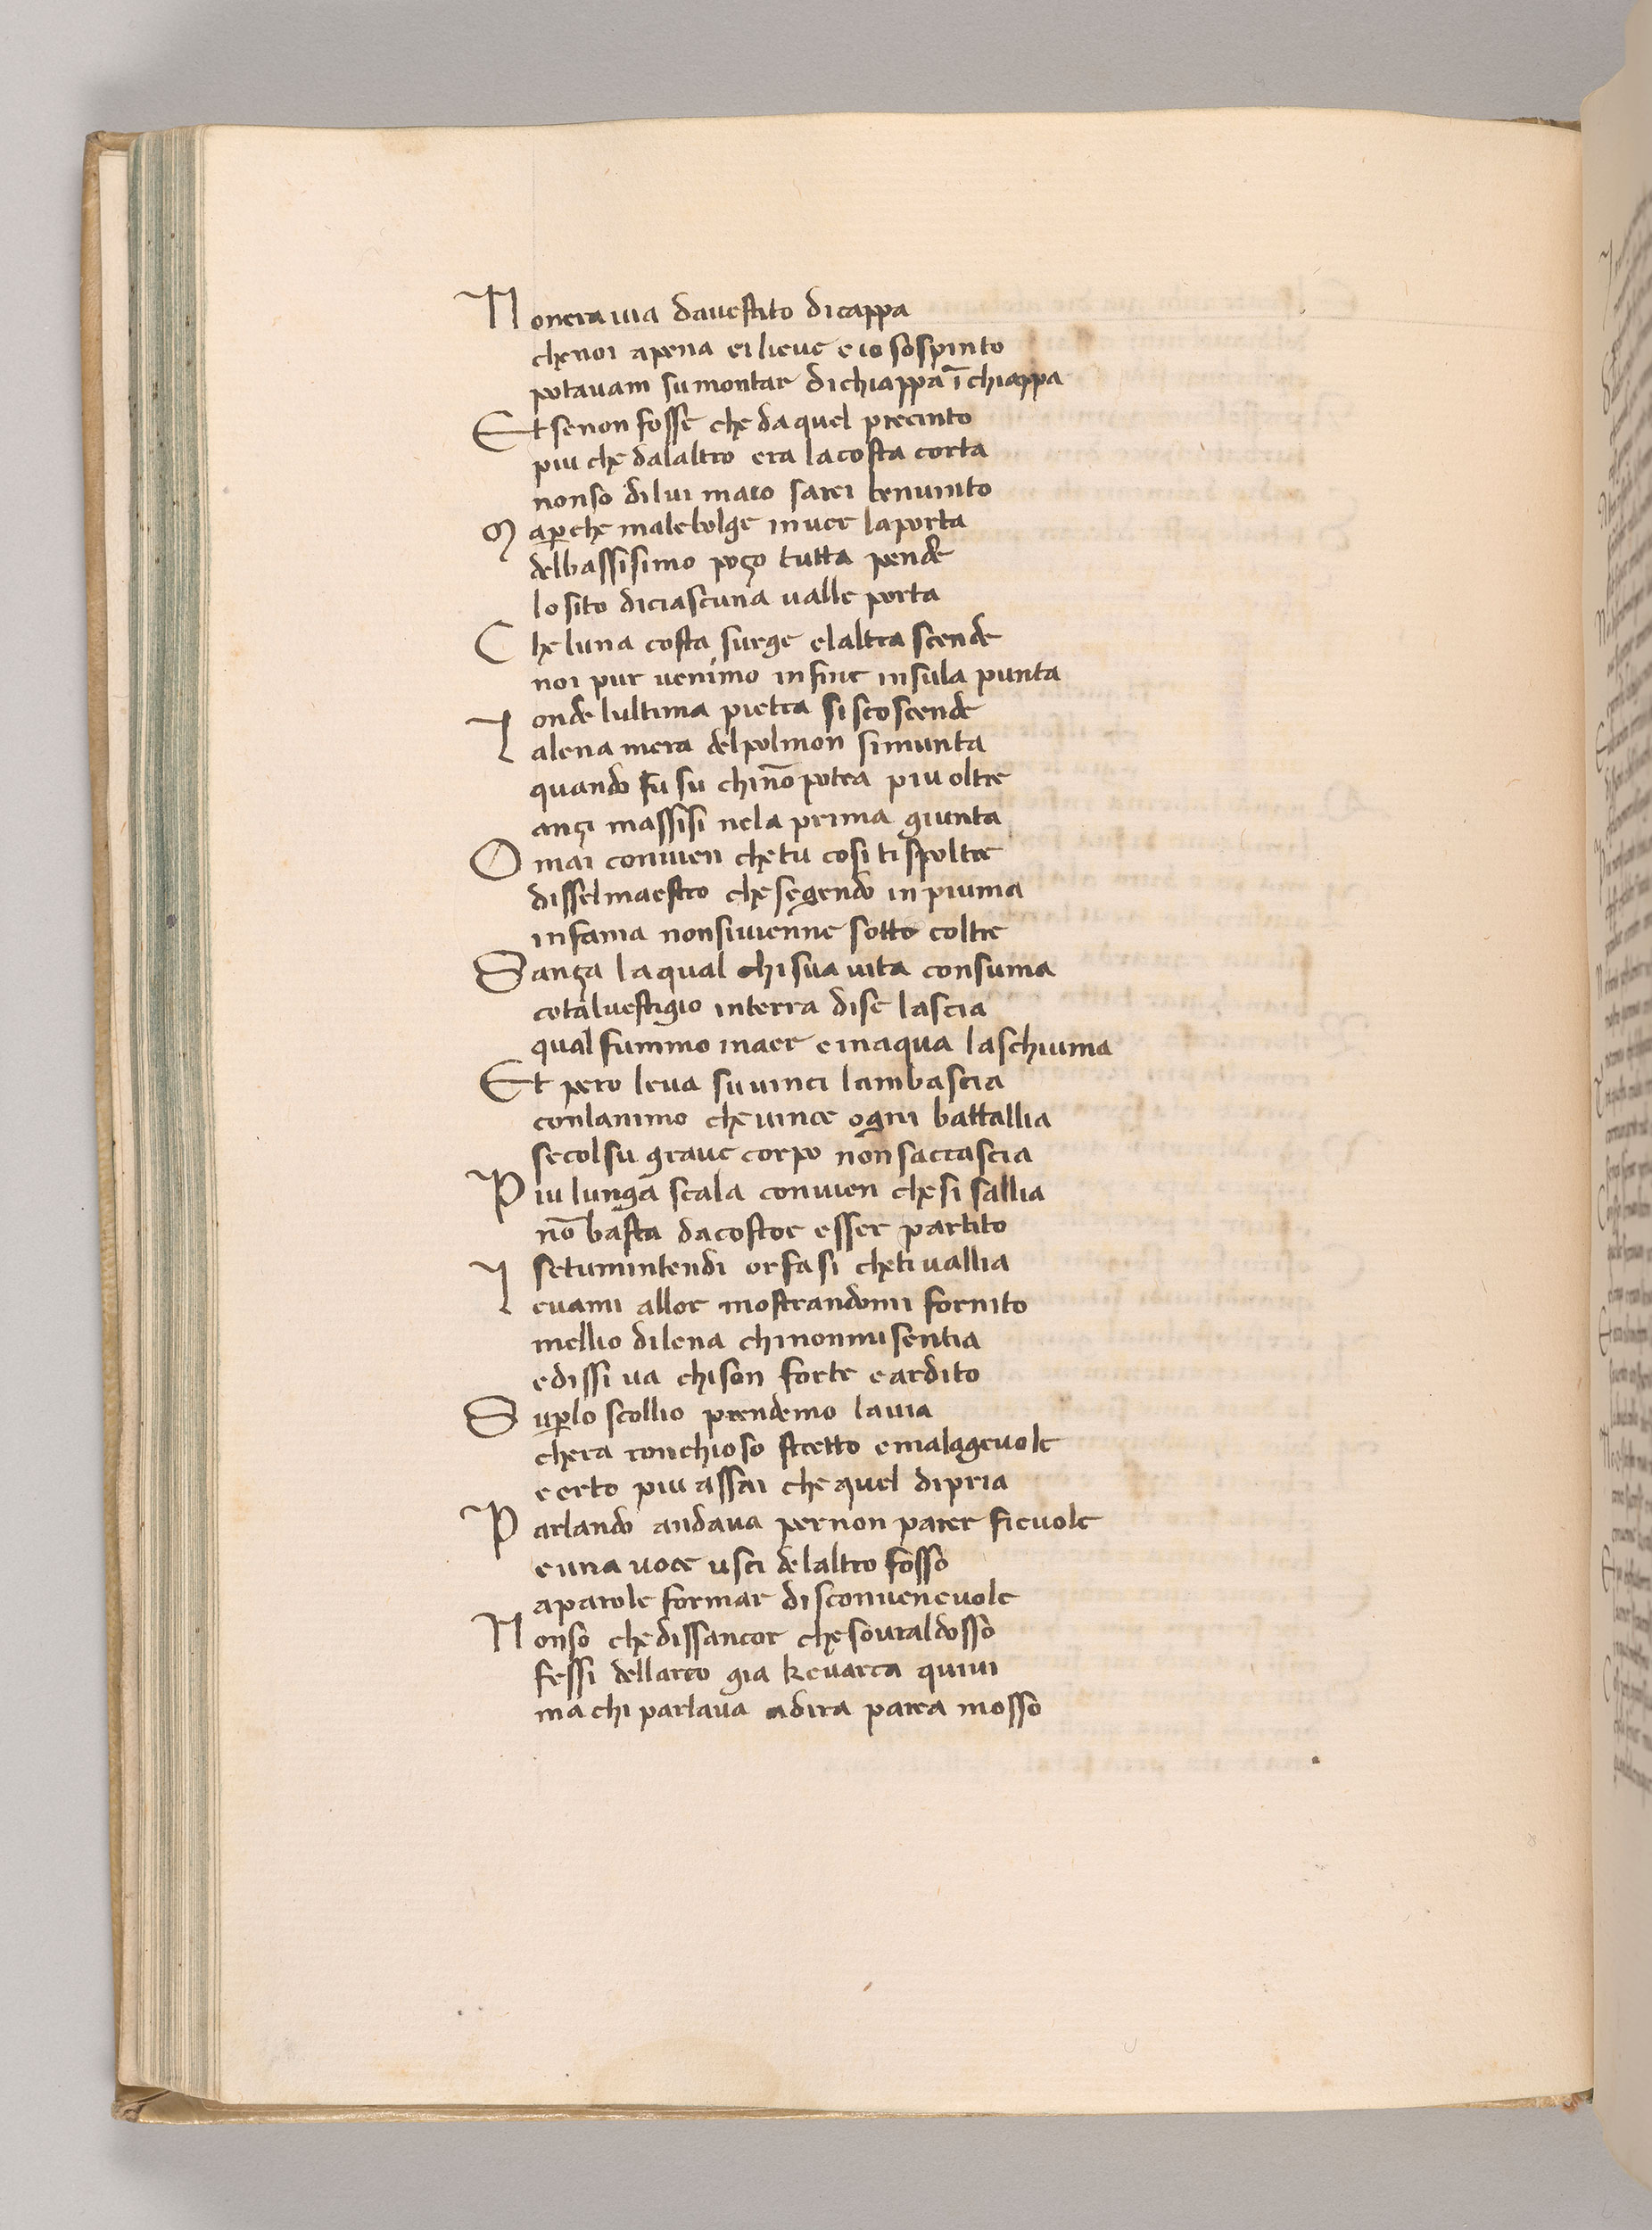 Nonera uia dauestito dicappa
chenoi apena ei lieue e io sospinto
potauam sumontar dichiappa ī chiappa
Et senon fosse che daquel precinto
piu che dalaltro era lacosta corta
nonso dilui maio sarei benuinto
Map̲che malebolge inuer laporta
delbassisimo poço tutta pende
lo sito diciascuna ualle porta
Che luna costa surge elaltra scende
noi pur uenimo infine insula punta
onde lultima pietra si scoscende
Lalena mera delpolmon simunta
quando fu su chinō potea piu oltre
ançi massisi nela prima giunta
Omai conuien chetu cosi ti spoltre
disselmaestro chesegendo in piuma
infama nonsiuienne sotto coltre
Sança laqual chi sua uita consuma
cotaluestigio interra dise lascia
qual fummo inaer e inaqua laschiuma
Et pero leua su uinci lambascia
conlanimo che uince ogni battallia
secolsu graue corpo non saccascia
Piu lunga scala conuien chesi sallia
nō basta dacostor esser partito
setumintendi or fa si cheti uallia
Leuami allor mostrandomi fornito
mellio dilena chinonmi sentia
edissi ua chison forte eardito
Sup̲lo scollio prendemo lauia
chera ronchioso stretto emalagieuole
eerto piu assai che quel dipria
Parlando andaua pernon parer fieuole
euna uoce usci delaltro fosso
aparole formar disconueneuole
Nonso chedissancor chesouraldosso
fessi dellarco gia keuarca quiui
ma chi parlaua adira parea mosso